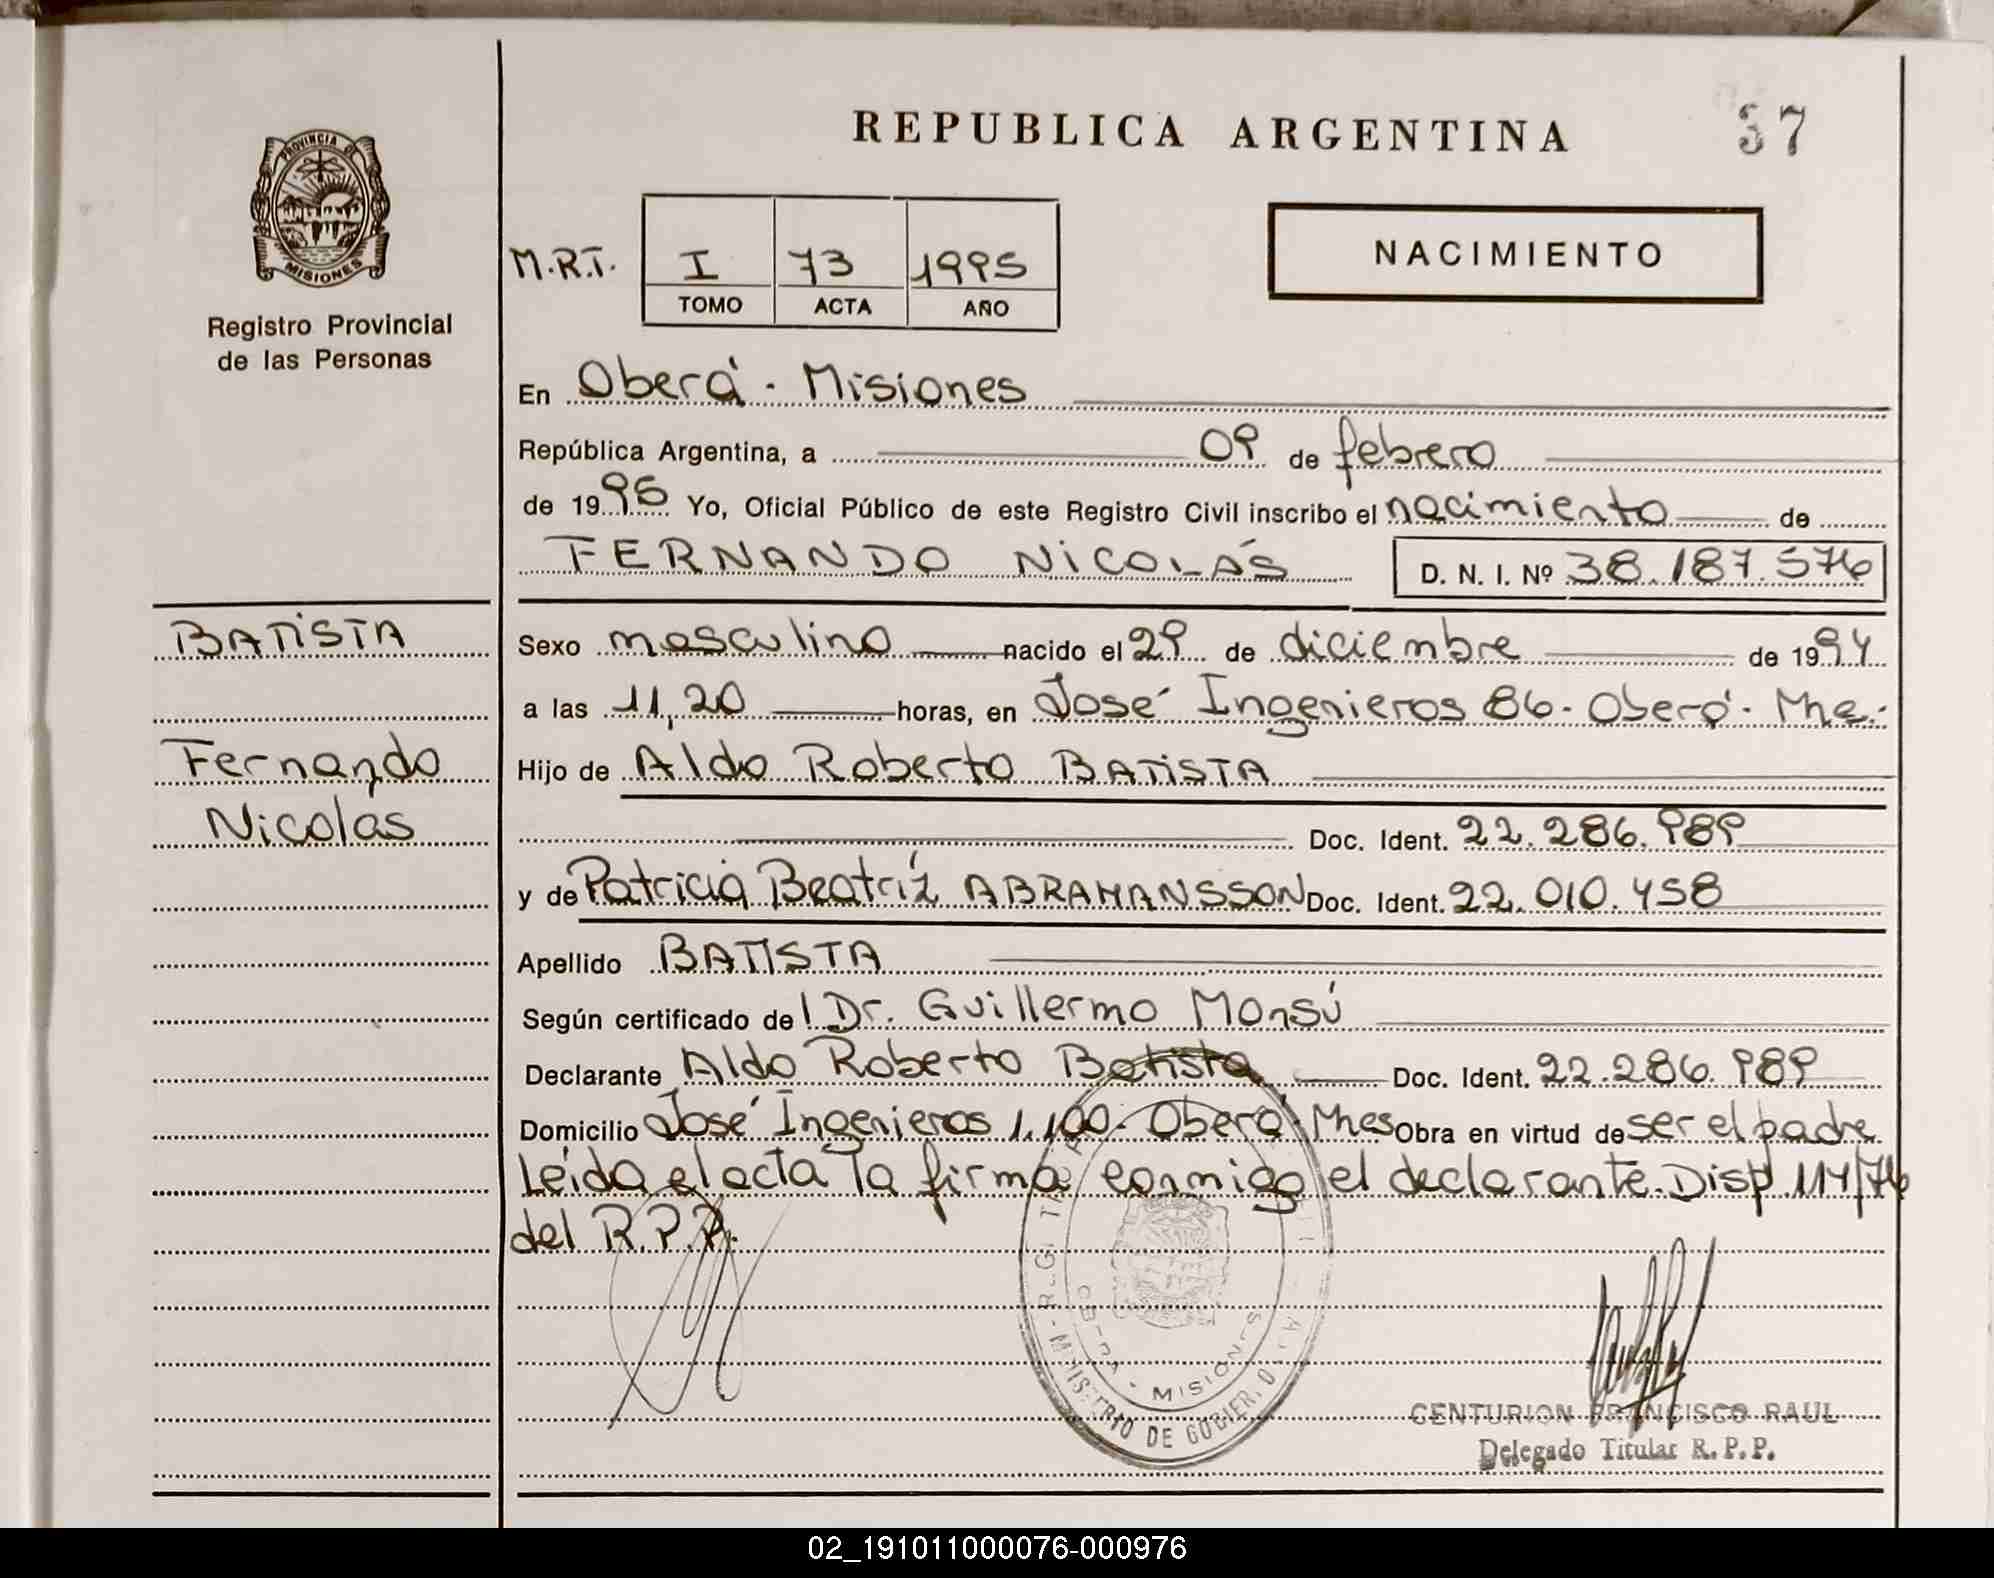 REPUBLICA ARGENTINA
37
PROVINCIA DE
MISIONES
Registro Provincial
de las Personas
M.R.T.
I 73 1995
TOMO ACTA AÑO
NACIMIENTO
En Oberá - Misiones
República Argentina, a 09 de febrero
de 1995 Yo, Oficial Público de este Registro Civil inscribo el nacimiento de
FERNANDO NICOLÁS D. N. I. Nº 38.187.576
BATISTA
Fernando
Nicolás
Sexo masculino nacido el 29 de diciembre de 1994
a las 11,20 horas, en José Ingenieros 86 - Oberá - Mnes.
Hijo de Aldo Roberto BATISTA
Doc. Ident. 22.286.989
y de Patricia Beatríz ABRAHANSSON Doc. Ident. 22.010.458
Apellido BATISTA
Según certificado del Dr. Guillermo Monsú
Declarante Aldo Roberto Batista Doc. Ident. 22.286.989
Domicilio José Ingenieros 1.100 - Oberá - Mnes Obra en virtud de ser el padre
Leída el acta la firma conmigo el declarante. Disp. 114/76
del R.P.P.
MINISTERIO DE GOBIERNO
MISIONES
CENTURION FRANCISCO RAUL
Delegado Titular R.P.P.
02_191011000076-000976